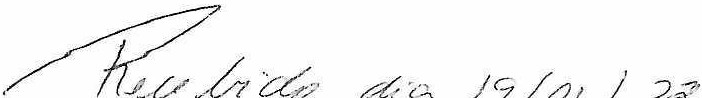 Recebido dia 19/01/22